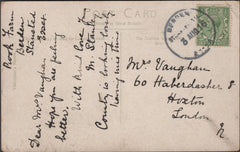 CARD
BERDEN
Rook Farm
Berden
Stansted
Essex
Dear Mrs Vaughan
Hope you are feeling
better.
With kind love from
M.
County is looking lovely
Mrs Vaughan
60 Haberdasher S
Hoxton
London
N